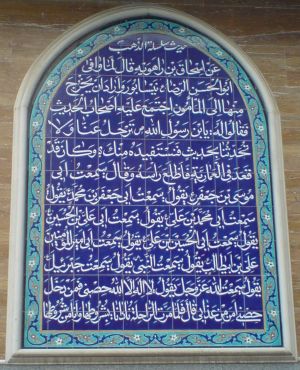 حديث سلسلة الذهب
عن اسحاق بن راهويه قال لما وافى
ابوالحسن الرضا بنيسابور واراد ان يخرج
منها الى المأمون اجتمع عليه اصحاب الحديث
فقالوا له يا بن رسول الله ترحل عنا ولا
تحدثنا بحديث فنستفيده منك وكان قد
قعد في العمارية فاطلع رأسه وقال سمعت ابي
موسى بن جعفر يقول سمعت ابي جعفر بن محمد يقول
سمعت ابي محمد بن علي يقول سمعت ابي علي بن الحسين
يقول سمعت ابي الحسين بن علي يقول سمعت ابي اميرالمؤمنين
علي بن ابيطالب يقول سمعت النبي يقول سمعت جبرئيل
يقول سمعت الله عزوجل يقول لا اله الا الله حصني فمن دخل
حصني امن من عذابي قال فلما مرت الراحلة نادانا بشروطها وانا من شروطها